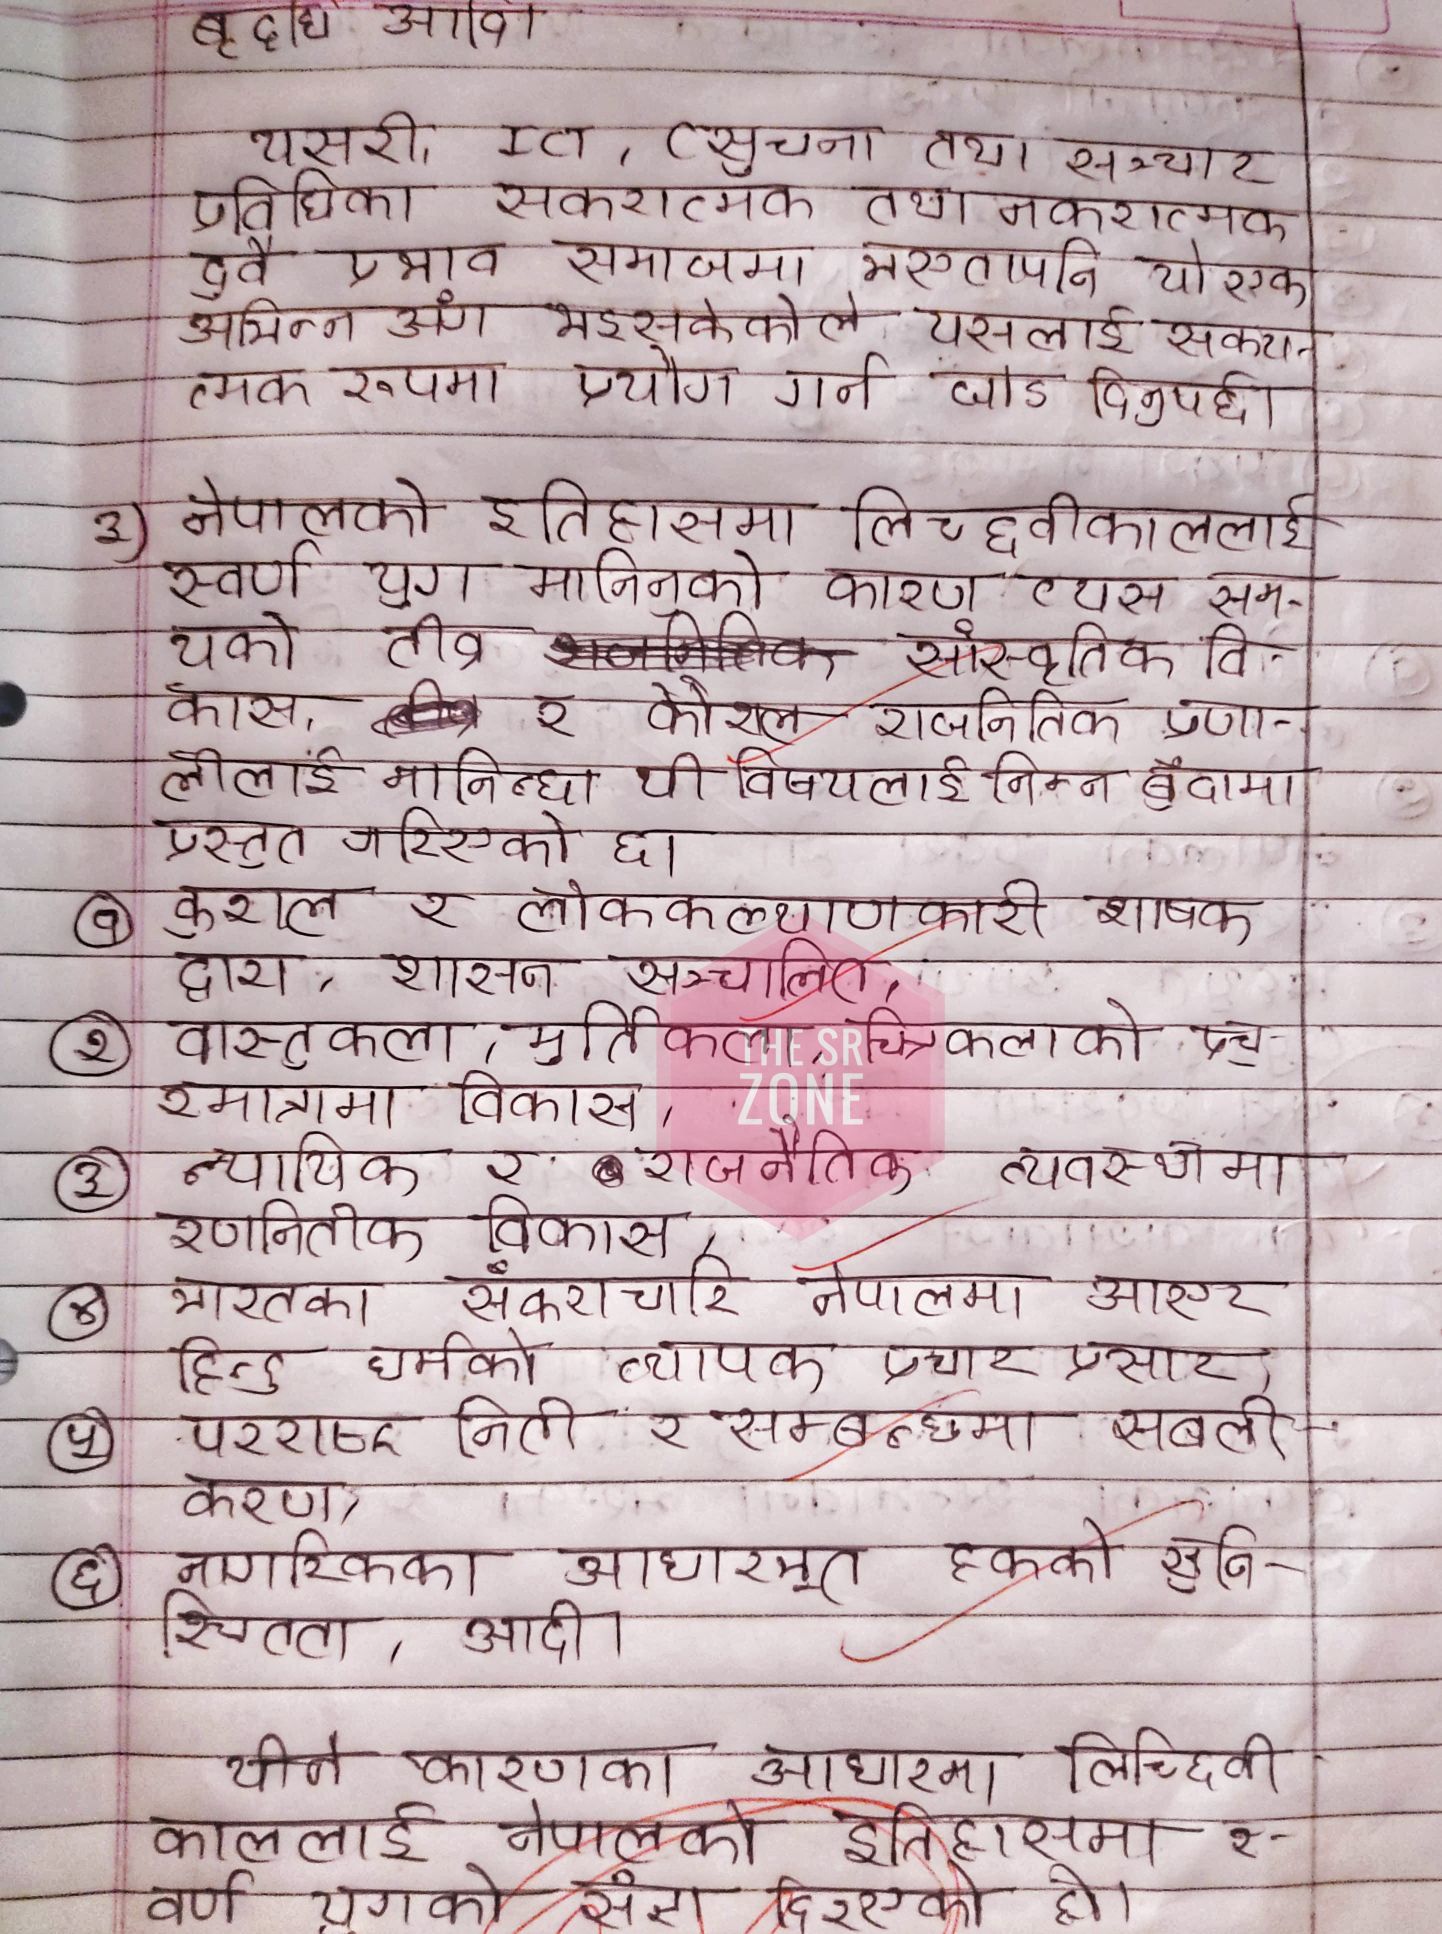 बृद्धि आदि।
यसरी, ICT, (सुचना तथा सञ्चार
प्रविधिका सकरात्मक तथा नकरात्मक
दुवै प्रभाव समाजमा भएतापनि यो एक
अभिन्न अंग भइसकेकोले यसलाई सकरा-
त्मक रूपमा प्रयोग गर्न जोड दिनुपर्छ।
३) नेपालको इतिहासमा लिच्छवीकाललाई
स्वर्ण युग मानिनुको कारण त्यस सम-
यको तीव्र सांस्कृतिक वि-
कास, र कौशल राजनितिक प्रणा-
लीलाई मानिन्छ। यी विषयलाई निम्न बुँदामा
प्रस्तुत गरिएको छ।
१ कुशल र लोककल्याणकारी शाषक
द्वारा, शासन सञ्चालित,
२ वास्तुकला, मुर्तिकला, चित्रकलाको प्रचु-
रमात्रामा विकास,
THE SR
ZONE
३ न्यायिक र राजनैतिक व्यवस्थामा
रणनितीक विकास,
४ भारतका संकराचारि नेपालमा आएर
हिन्दु धर्मको व्यापक प्रचार प्रसार,
५ परराष्ट्र निती र सम्बन्धमा सबली-
करण,
६ नागरिकका आधारभूत हकको सुनि-
श्चितता, आदी।
यीनै कारणका आधारमा लिच्छिवी
काललाई नेपालको इतिहासमा स्-
वर्ण युगको संज्ञा दिइएको हो।